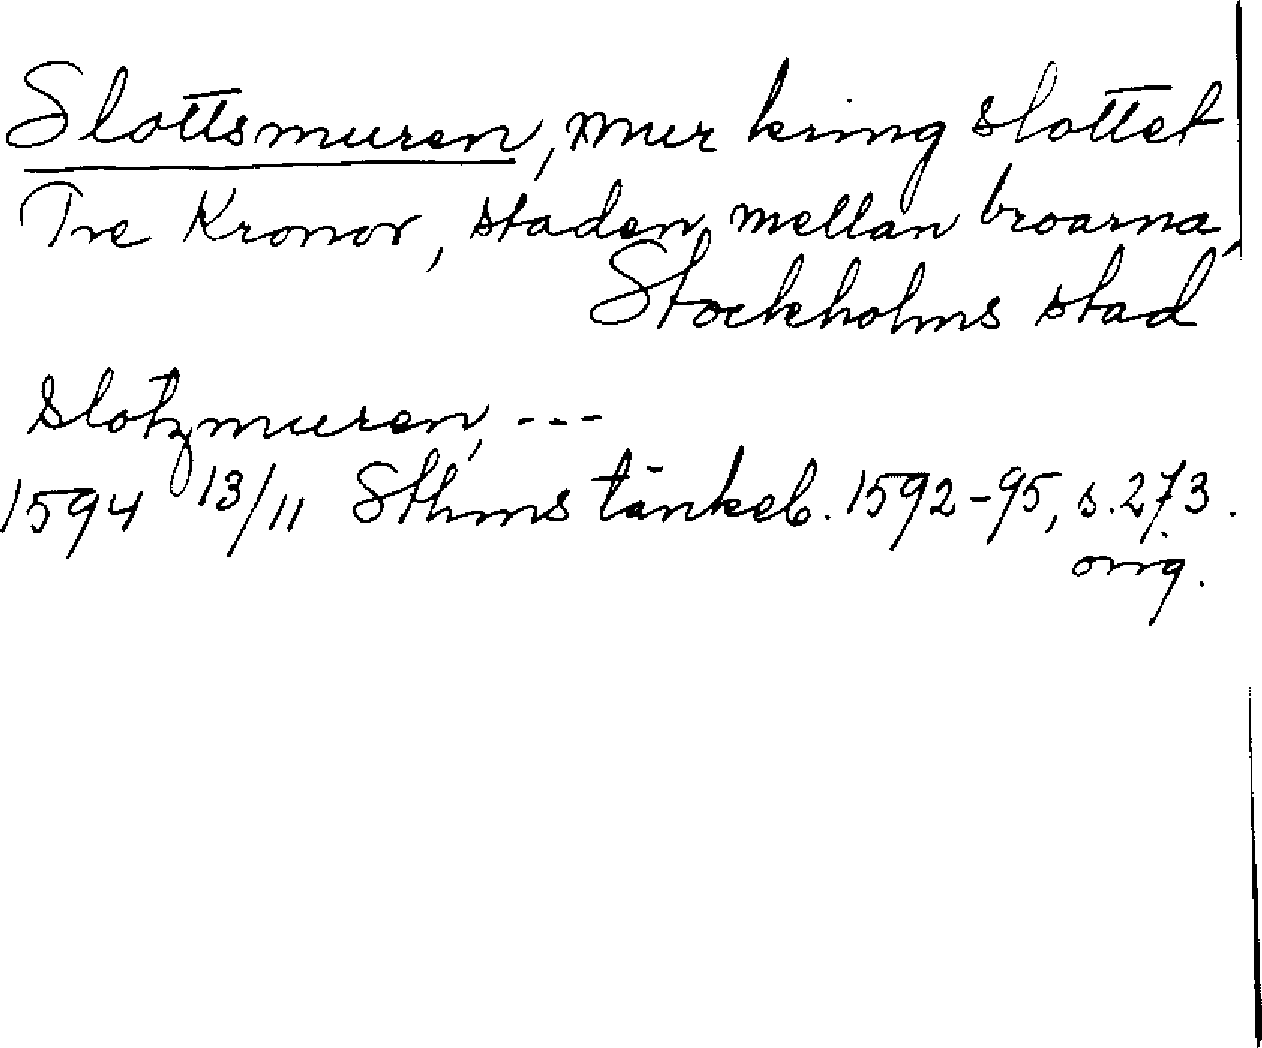 Slottsmuren, mur kring slottet
Tre Kronor, staden mellan broarna,
Stockholms stad
slotzmuren, ---
1594 13/11 Sthms tänkeb. 1592-95, s. 273.
orig.